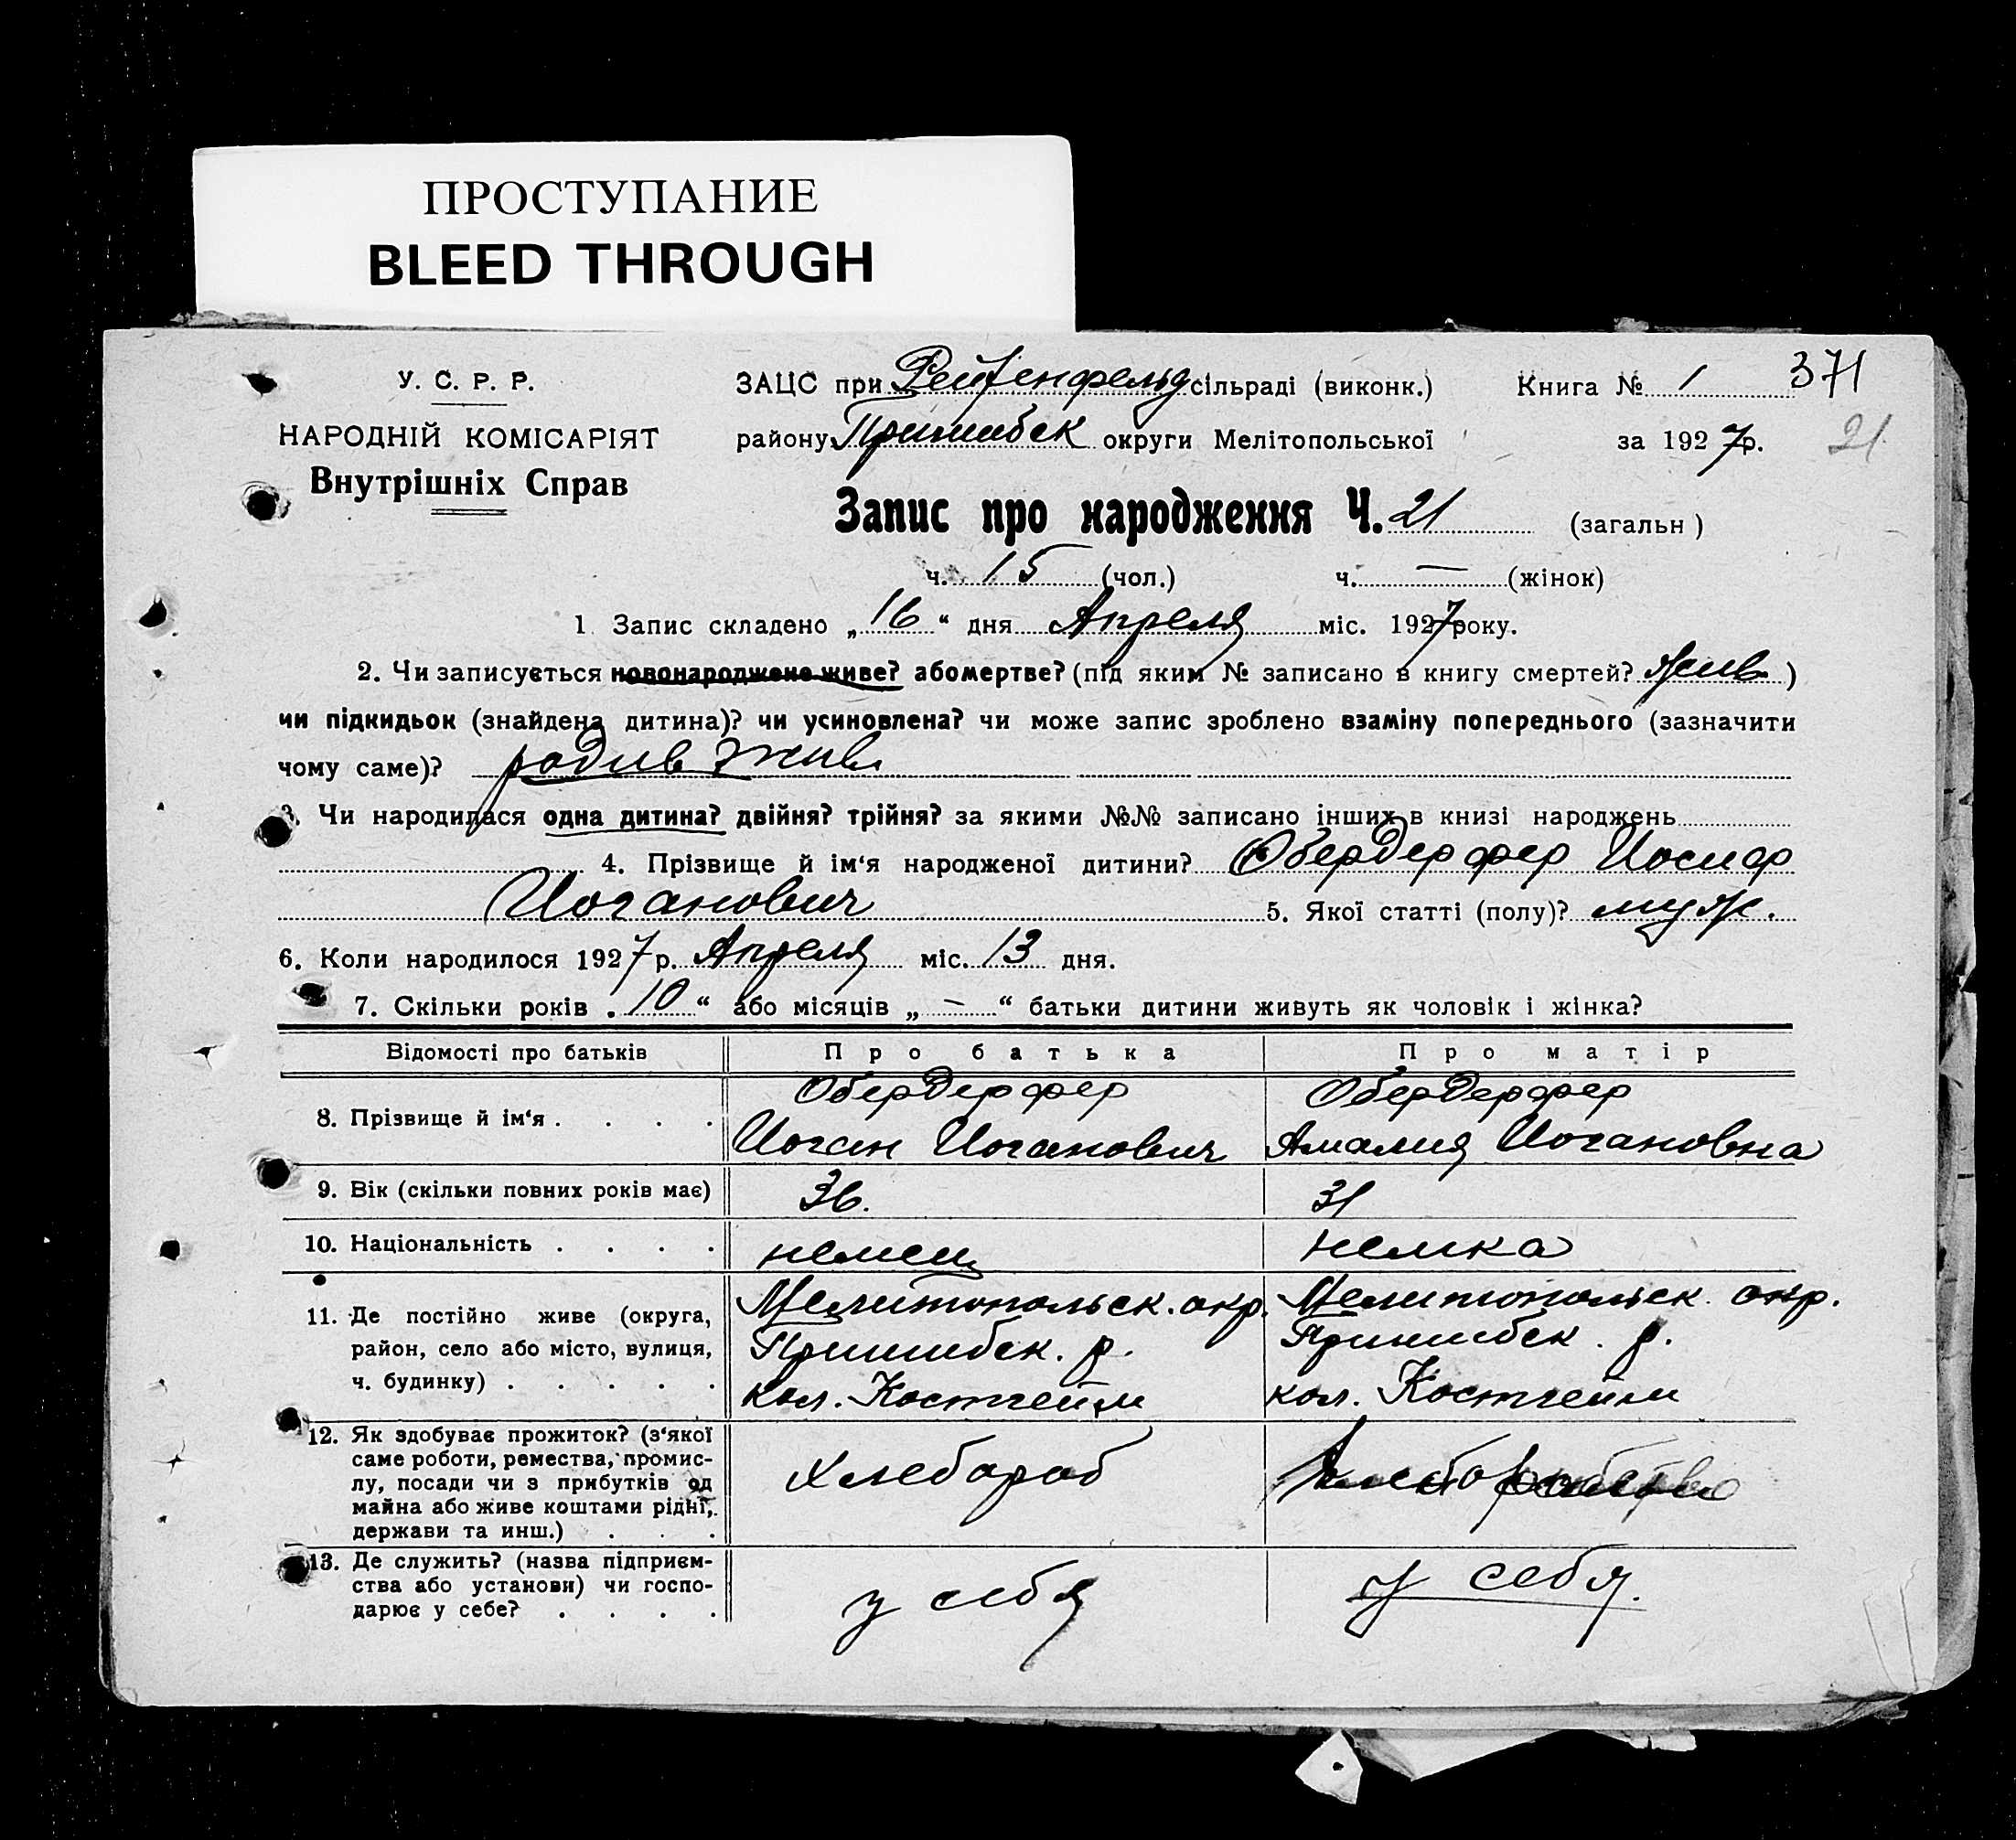 ПРОСТУПАНИЕ
BLEED THROUGH
У. С. Р. Р.
НАРОДНІЙ КОМІСАРІЯТ
Внутрішніх Справ
ЗАЦС при Рейхенфельд сільраді (виконк.) Книга № 1 371
району Пришибск округи Мелітопольської за 1927 р. 21
Запис про народження Ч. 21 (загальн)
ч. 15 (чол.) ч. — (жінок)
1 Запис складено „16“ дня Апреля міс. 1927 року.
2. Чи записується новонароджене живе? або мертве? (під яким № записано в книгу смертей? )
чи підкидьок (знайдена дитина)? чи усиновлена? чи може запис зроблено взаміну попереднього (зазначити
чому саме)? родив живы
3. Чи народилася одна дитина? двійня? трійня? за якими №№ записано інших в книзі народжень
4. Прізвище й ім‘я народженої дитини? Обердерфер Иосиф
Иоганович 5. Якої статті (полу)? муж.
6. Коли народилося 1927 р. Апреля міс. 13 дня.
7. Скільки років „10“ або місяців „—“ батьки дитини живуть як чоловік і жінка?
Відомості про батьків Про батька Про матір
8. Прізвище й ім‘я . . . . Обердерфер Обердерфер
Иоган Иоганович Амалия Иогановна
9. Вік (скільки повних років має) 36. 31
10. Національність . . . . немец немка
11. Де постійно живе (округа, Мелитопольск. окр. Мелитопольск. окр.
район, село або місто, вулиця, Пришибск. р. Пришибск. р.
ч. будинку) . . . . . кол. Костгейм кол. Костгейм
12. Як здобуває прожиток? (з‘якої
саме роботи, ремества, промис-
лу, посади чи з прибутків од хлебороб
майна або живе коштами рідні,
держави та инш.) . . .
13. Де служить? (назва підприєм-
ства або установи) чи госпо- у себя у себя.
дарює у себе? . . . .